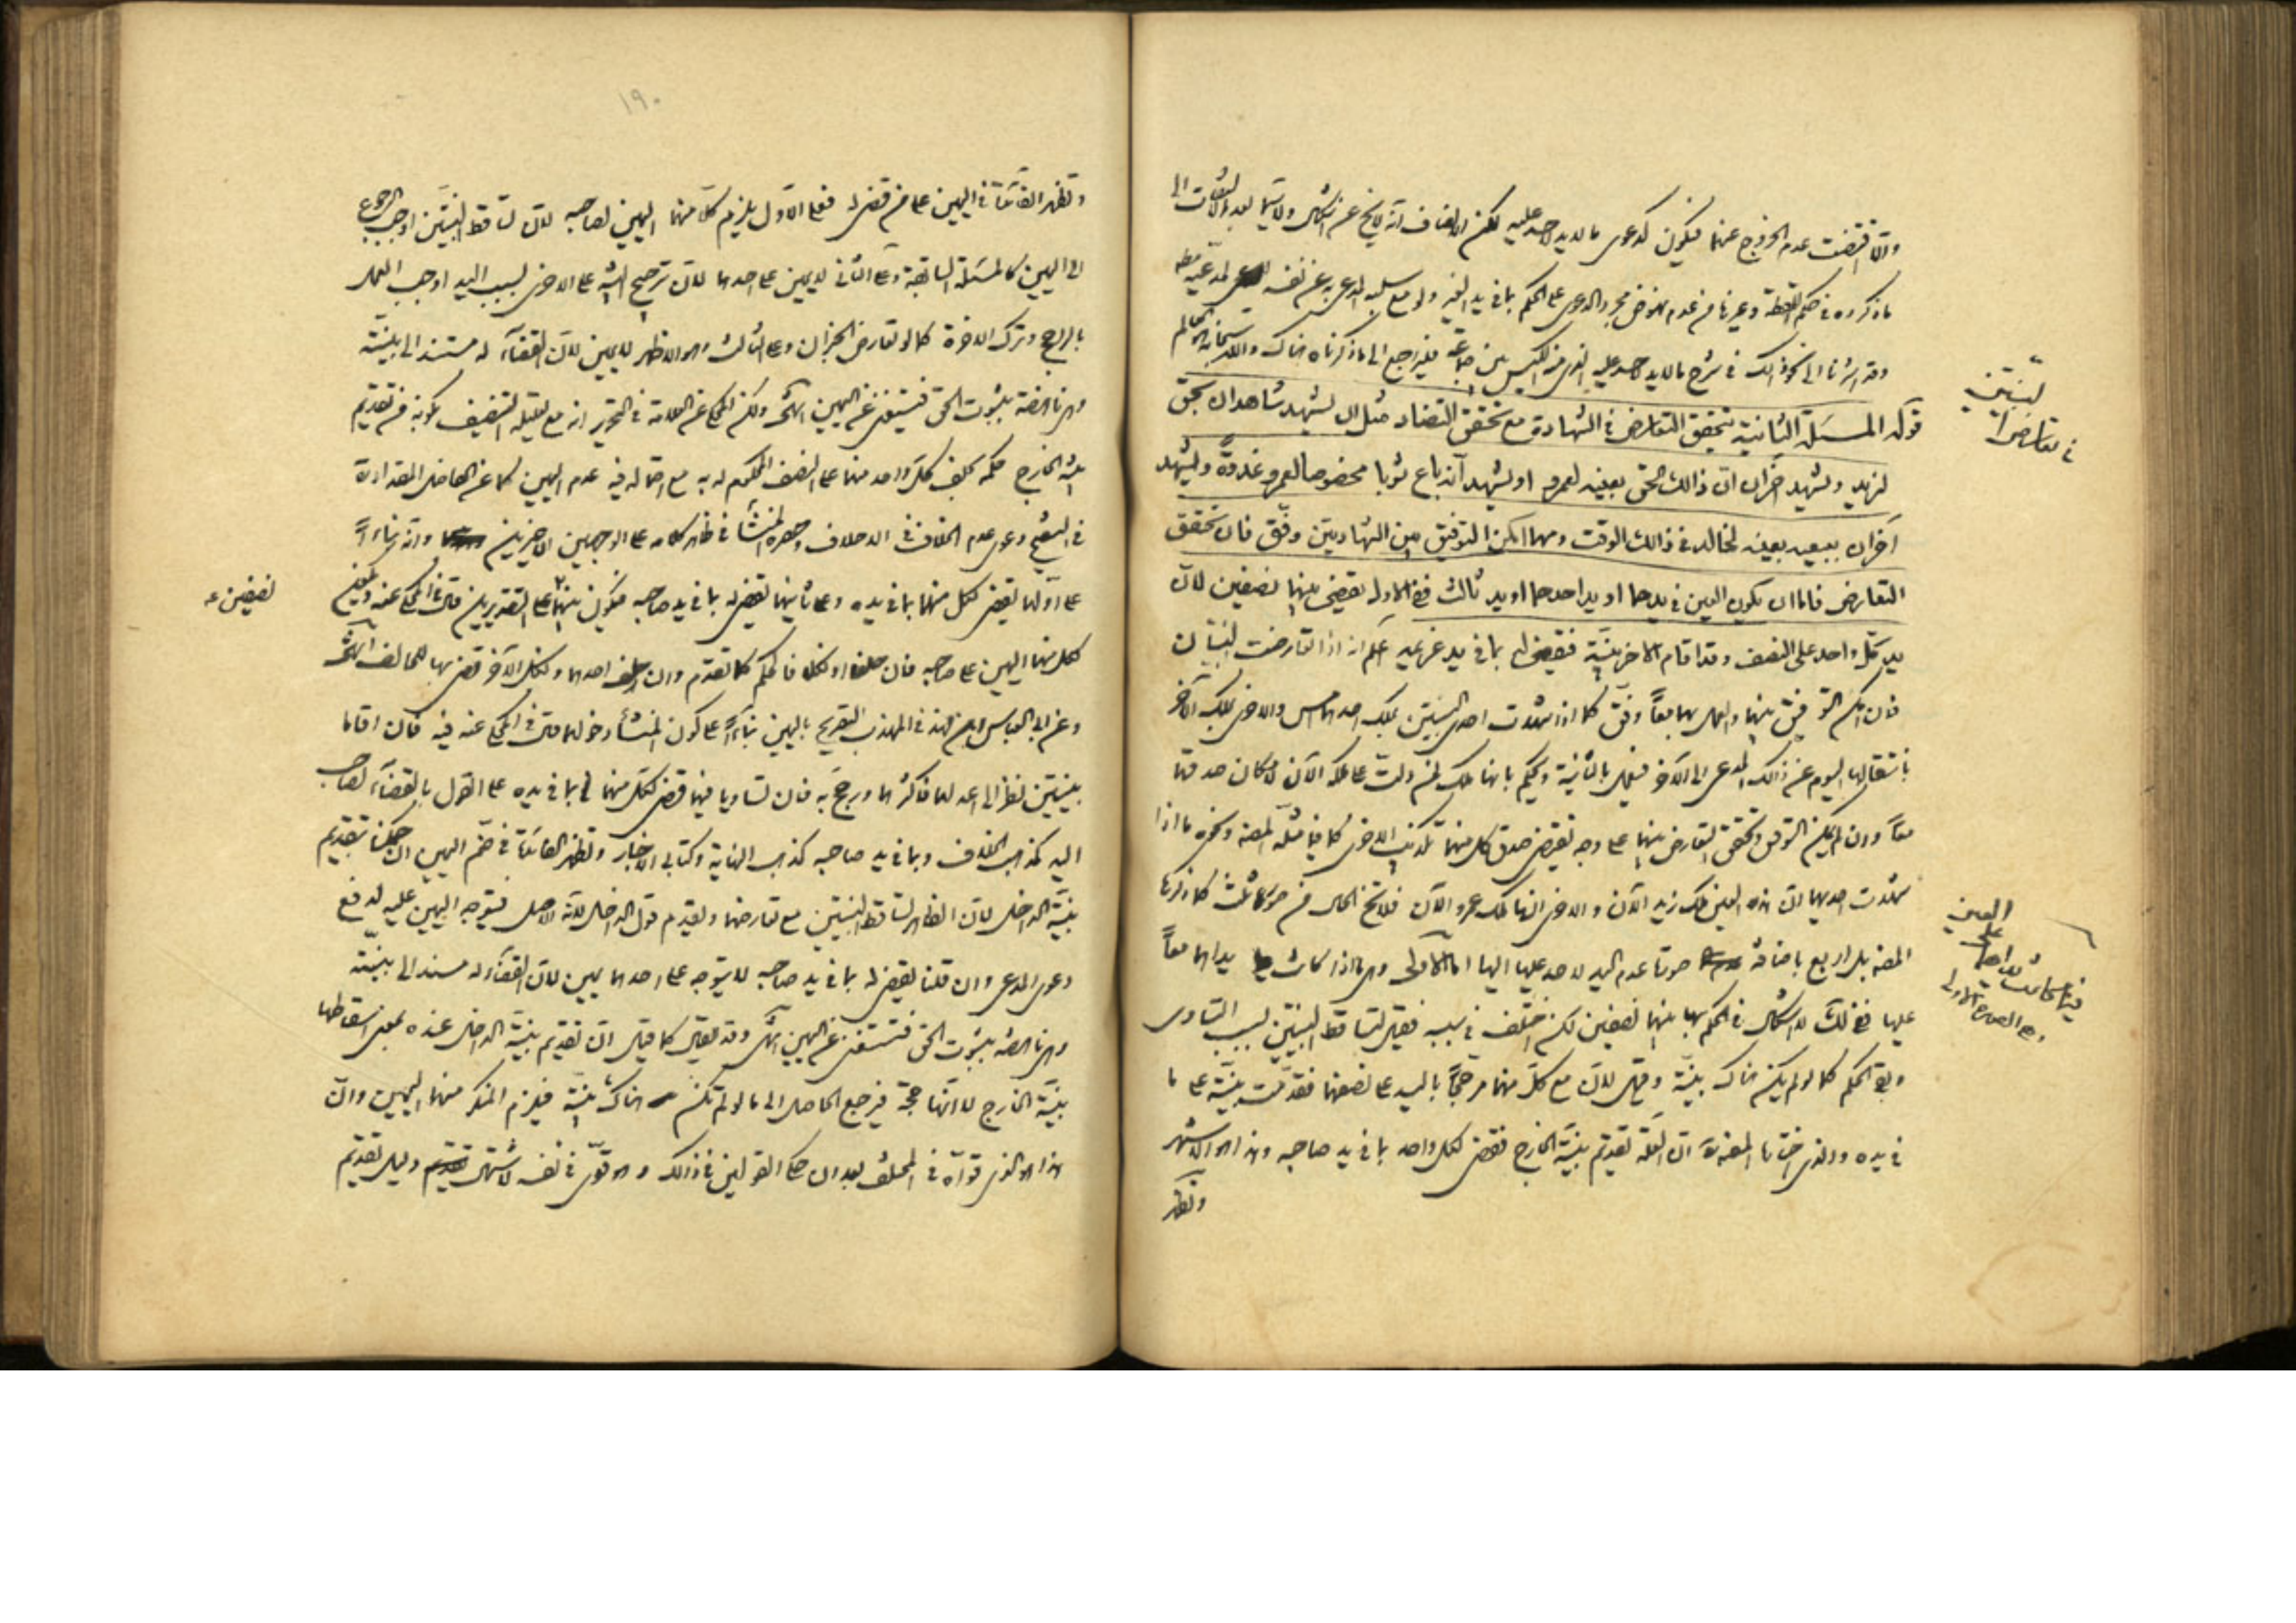 والا اقتضت عدم الخروج عنهما فيكون كدعوى ما لا يد لاحد عليه لكن الانصاف انه لا يخ عن اشكال ولا سيما بعد الالتفات الى
ما ذكروه في حكم اللقطة وغيرها من عدم نهوض مجرد الدعوى على الحكم بما في يد الغير ولو مع سلب المدعى به عن نفسه
وقد اشرنا الى نحو ذلك في شرح ما لا يد لاحد عليه الذي من الكيس بين جماعة فليراجع الى ما ذكرناه هناك والله سبحانه العالم
قوله المسئلة الثانية يتحقق التعارض في الشهادة مع تحقق التضاد مثل ان يشهد شاهدان بحق
لزيد ويشهد آخران ان ذالك الحق بعينه لعمرو او يشهد آنه باع ثوبا مخصوصا لعمرو غدوة ويشهد
آخران ببيعه بعينه لخالد في ذالك الوقت ومهما امكن التوفيق بين الشهادتين وفق فان تحقق
التعارض فاما ان يكون العين في يدهما او يد احدهما او يد ثالث ففي الاول يقضى بينهما نصفين لان
يد كل واحد على النصف وقد اقام الآخر بينة فيقضى له بما في يد غريمه اعلم انه اذا تعارضت البينتان
فان امكن التوفيق بينهما والعمل بهما معاً وفق كما اذا شهدت احدى البينتين بملك احدهما امس والاخرى بملك الآخر
بانتقالها اليوم عن ذالك المدعى الى الآخر فيعمل بالثانية ويحكم بانها ملك لمن دلت على ملكه الآن لامكان صدقهما
معاً وان لم يمكن التوفيق وتحقق التعارض بينهما على وجه يقتضي صدق كل منهما تكذيب الاخرى كما فيما مثله المصنف ونحوه ما اذا
شهدت احديهما ان هذه العين ملك زيد الآن والاخرى انها ملك عمرو الآن فلا يخ الحال من صور ثلث كما ذكرها
المصنف بل اربع باضافة صورة عدم اليد لاحد عليها اليها اما الاولى وهي ما اذا كانت يداهما معاً
عليها ففي ذلك لا اشكال في الحكم بها بينهما نصفين لكن اختلف في سببه فقيل لتساقط البينتين بسبب التساوي
وبقي الحكم كما لو لم يكن هناك بينة وقيل لان مع كل منهما مرجحاً باليد على نصفها فقدمت بينته على ما
في يده والذي اختاره المصنف ان العلة تقديم بينة الخارج فقضى لكل واحد بما في يد صاحبه وهذا هو الاشهر
وتظهر
في تعارض البينتين
١٩٠
وتظهر الفائدة في اليمين على من قضى له فعلى الاول يلزم كلا منهما اليمين لصاحبه لان تساقط البينتين اوجب الرجوع
الى اليمين كالمسئلة السابقة وعلى الثاني لا يمين على احدهما لان ترجيح البينة على الاخرى بسبب اليد اوجب العمل
بالراجح وترك الاخرى كما لو تعارض الخبران وعلى الثالث وهو الاظهر لا يمين لان القضاء له مستند الى بينته
وهي ناهضة بثبوت الحق فيستغنى عن اليمين انتهى ولكن المحكي عن العلامة في التحرير انه مع تعليله التنصيف بكونه من تقديم
بينة الخارج حكم بحلف كل واحد منهما على النصف المحكوم له به مع احتماله فيه عدم اليمين كما عن الفاضل المقداد
في التنقيح دعوى عدم الخلاف في الاحلاف وحصره المنشأ في ظاهر كلامه على الوجهين الاخيرين وانه بناءاً
على اولهما يقضى لكل منهما بما في يده وعلى ثانيهما يقضى له بما في يد صاحبه فيكون بينهما على التقديرين قال في المحكي عنه ويحلف
كل منهما اليمين على صاحبه فان حلفا او نكلا فالحكم كما تقدم وان حلف احدهما ونكل الآخر قضى بها للحالف انتهى
وعن ابي العباس ابن فهد في المهذب التصريح باليمين بناءً على كون المنشأ دخولهما قال في المحكي عنه فيه فان اقاما
بينتين نظر الى اعدلهما فاكثرهما ورجح به فان تساويا فيهما قضى لكل منهما بما في يده على القول بالقضاء لصاحب
اليد كمذهب الخلاف وبما في يد صاحبه كمذهب النهاية وكتابي الاخبار وتظهر الفائدة في ضم اليمين ان حكمنا بتقديم
بينة الداخل لان الظاهر تساقط البينتين مع تعارضهما وتقديم قول الداخل لانه الاصل فيتوجه اليمين عليه لدفع
دعوى المدعي وان قلنا يقضى له بما في يد صاحبه لا يتوجه على احدهما يمين لان القضاء له مستند الى بينته
وهي ناهضة بثبوت الحق فيستغنى عن اليمين انتهى وقد يقال كما قيل ان تقديم بينة الداخل عنده بمعنى اسقاطها
بينة الخارج لا انها حجة فيرجع الحاصل الى ما لو لم تكن هناك بينة فيلزم المنكر منهما اليمين وان
هذا هو الذي قواه في المختلف بعد ان حكى القولين في ذالك وهو قوي في نفسه لا شتهار دليل تقديم
نصفين